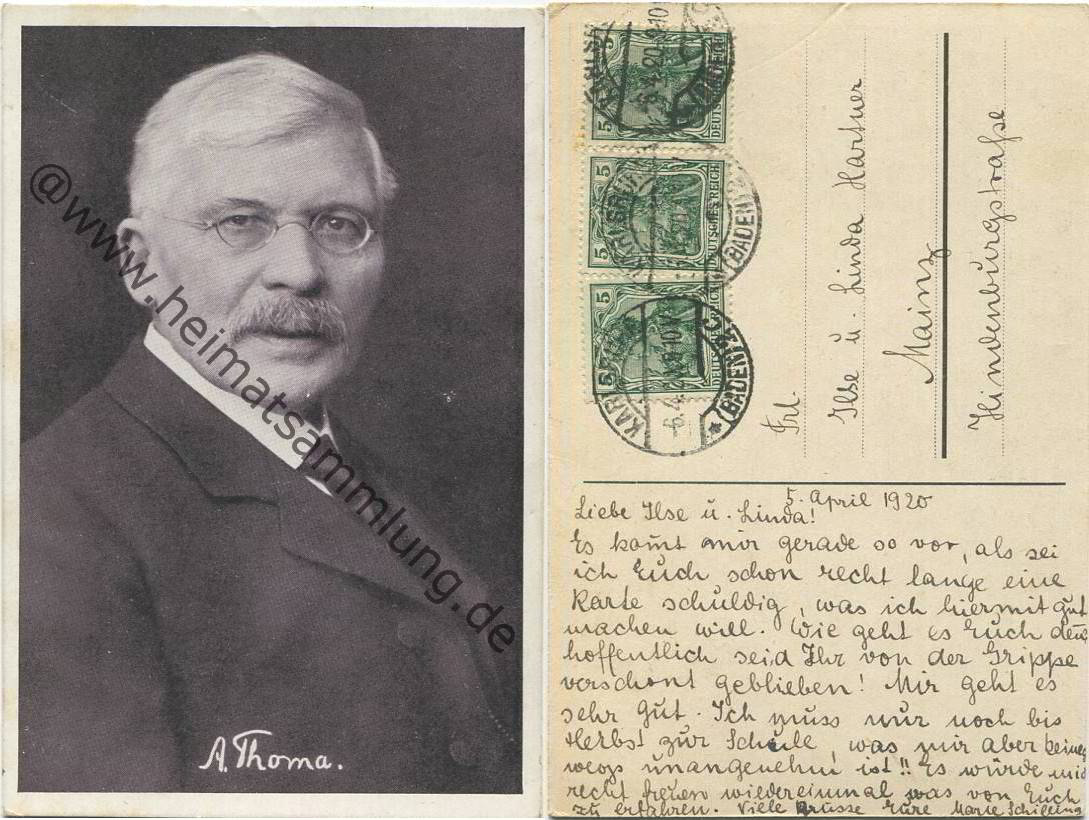 @www.heimatsammlung.de
A. Thoma.
5
DEUTSCHES REICH
5
DEUTSCHES REICH
5
DEUTSCHES REICH
KARLSRUHE
(BADEN)
Frl.
Ilse u. Linda Hartner
Mainz
Hindenburgstraße
5. April 1920
Liebe Ilse u. Linda!
Es kommt mir gerade so vor, als sei
ich Euch schon recht lange eine
Karte schuldig, was ich hiermit gut
machen will. Wie geht es Euch denn
hoffentlich seid Ihr von der Grippe
verschont geblieben! Mir geht es
sehr gut. Ich muss nur noch bis
Herbst zur Schule, was mir aber keines
wegs unangenehm ist!! Es würde mich
recht freuen wiedereinmal was von Euch
zu erfahren. Viele Grüsse Eure Marie Schilling